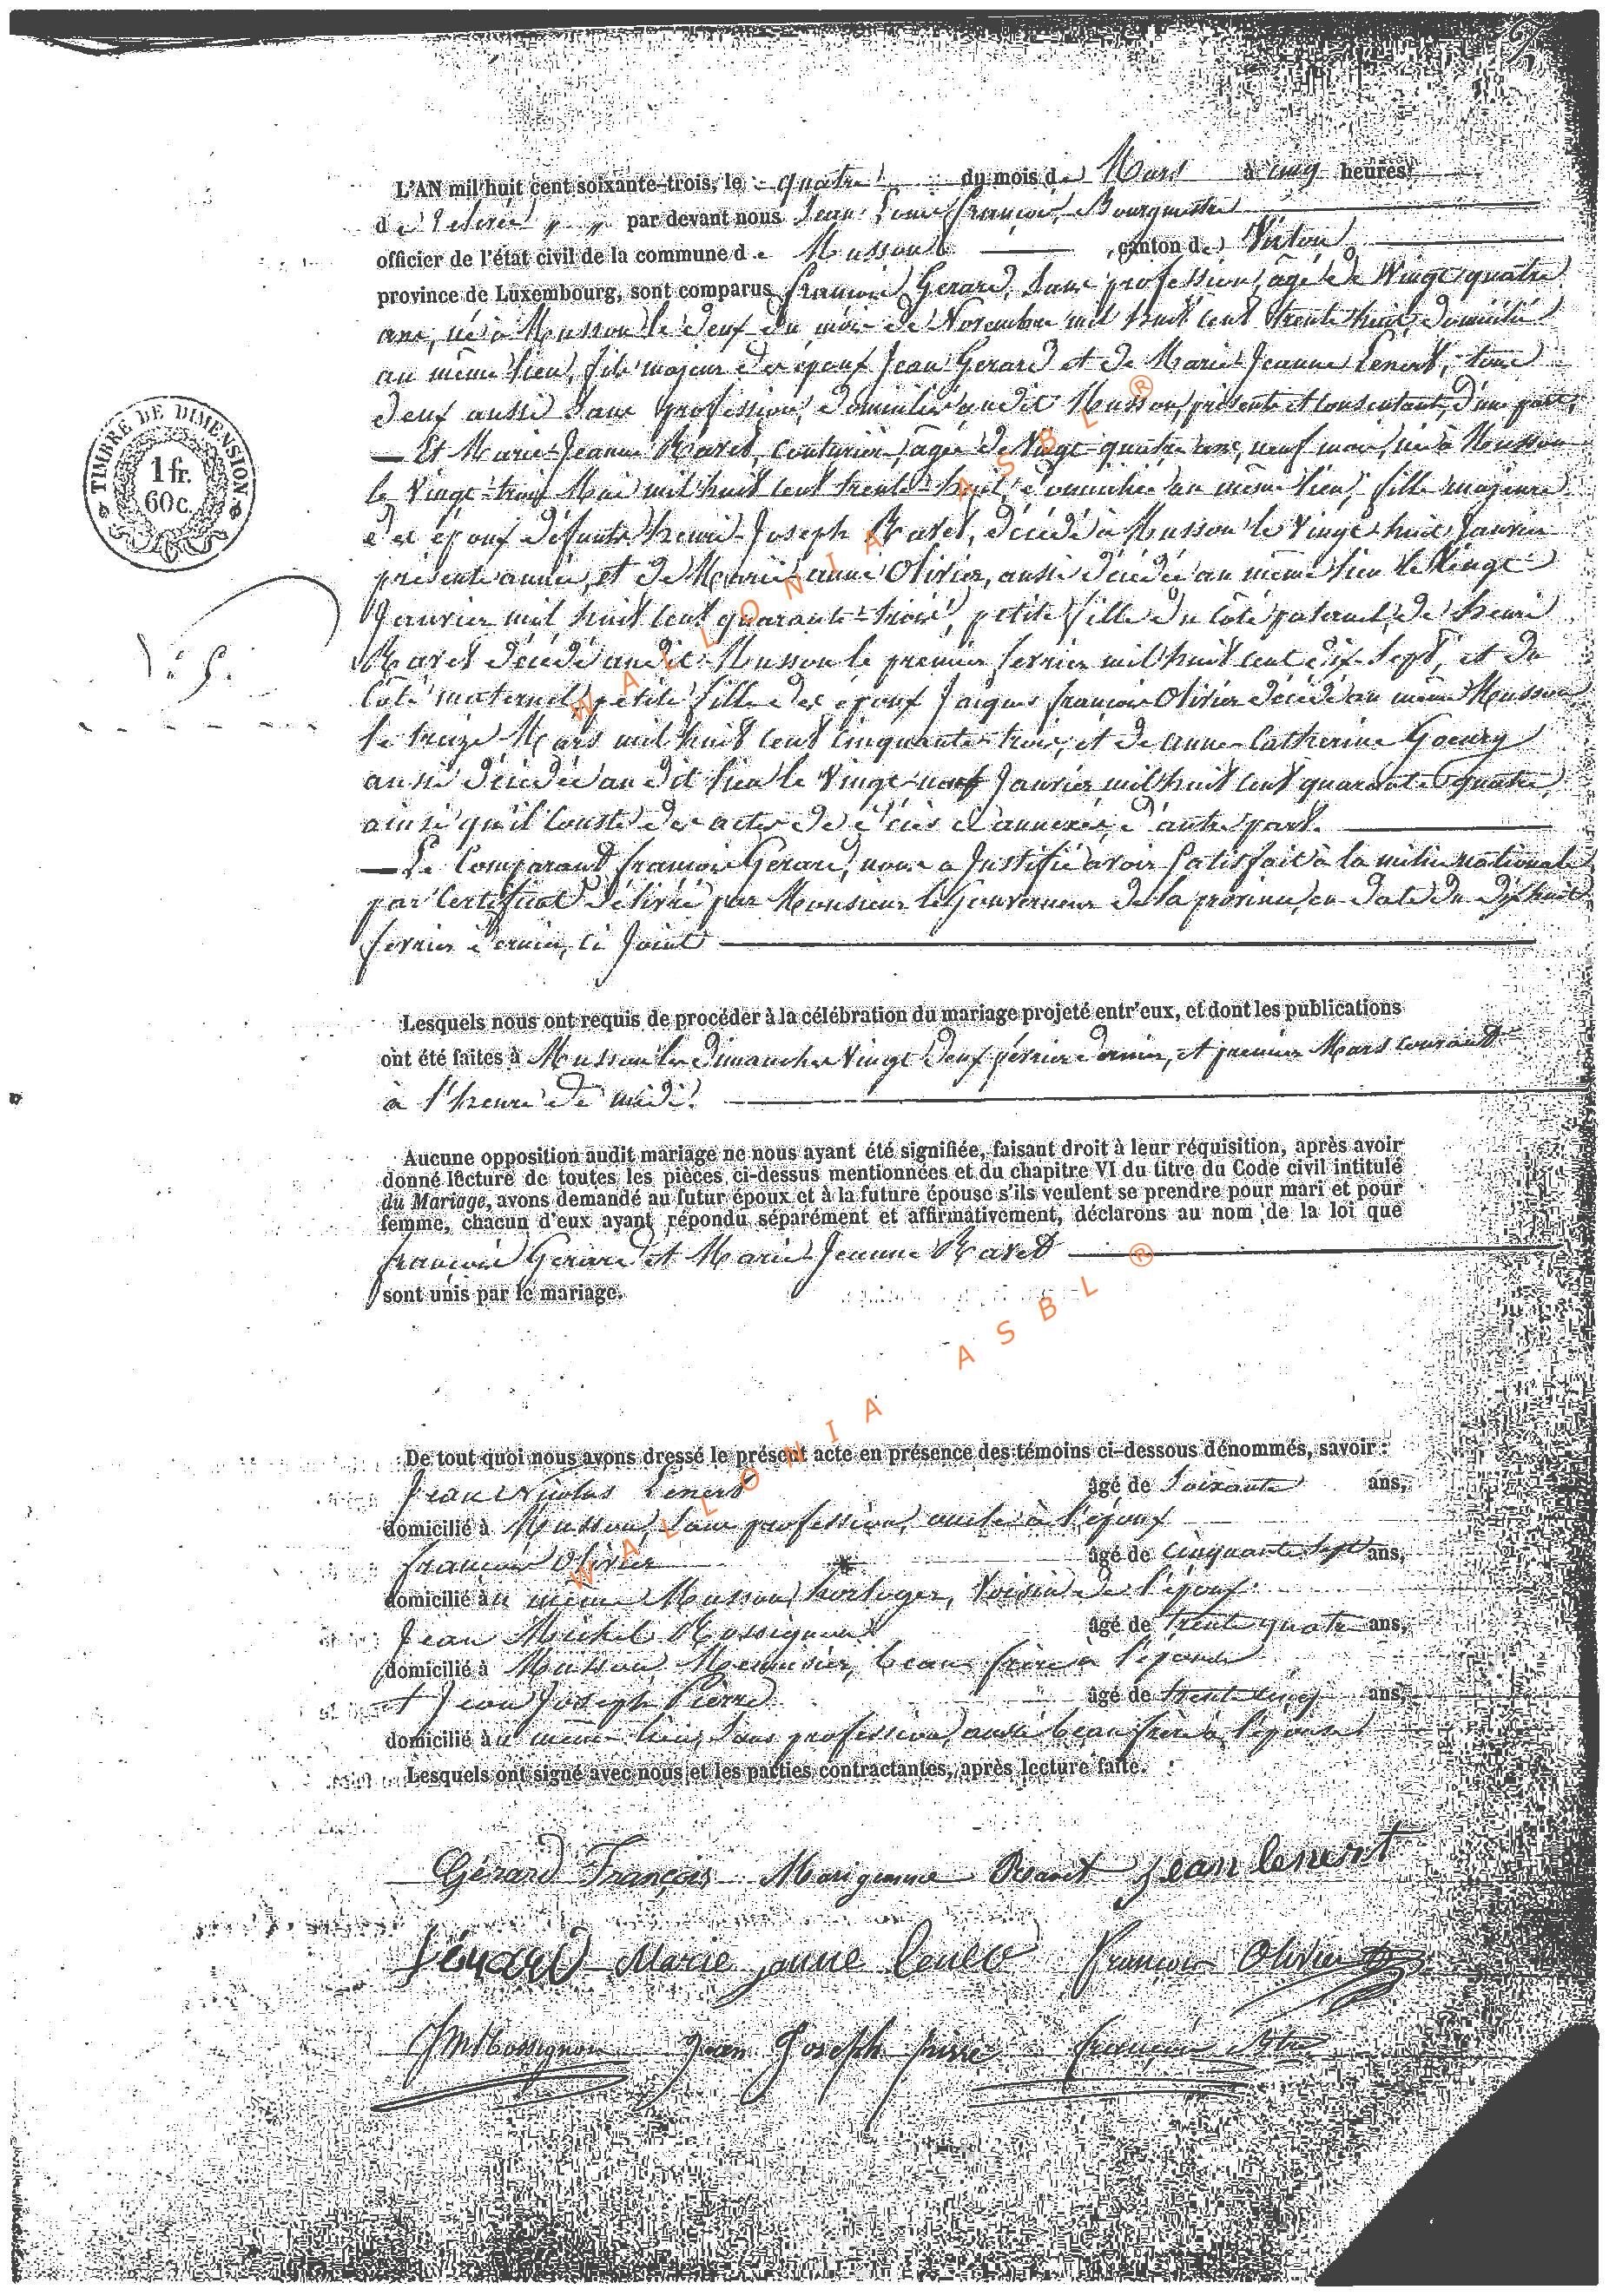 L'AN mil huit cent soixante-trois, le quatre du mois de Mars à cinq heures
de relevée " " par devant nous Jean Louis François, Bourgmestre
officier de l'état civil de la commune de Musson canton de Virton
province de Luxembourg, sont comparus François Gerard, sans profession, âgé de Vingt quatre
ans, né à Musson le deux du mois de Novembre mil huit cent trente huit, domicilié
au même lieu, fils majeur des époux Jean Gerard et de Marie Jeanne Lenert, tous
deux aussi sans profession, domiciliés audit Musson, présents et consentants, d'une part,
Et Marie-Jeanne Ravet, couturière, âgée de Vingt-quatre ans, neuf mois, née à Musson
le Vingt-trois Mai mil huit cent trente-huit, domiciliée au même lieu, fille majeure
des époux défunts Henri-Joseph Ravet, décédé à Musson le Vingt-huit Janvier
présente année, et de Marie-anne Olivier, aussi décédée au même lieu le Vingt
Janvier mil huit cent quarante-trois, petite fille du côté paternel, de henri
Ravet décédé audit Musson le premier fevrier mil huit cent dix Sept, et du
Côté maternel, petite fille des époux Jacques françois Olivier décédé au même Musson
le treize Mars mil huit cent cinquante-trois, et de anne-Catherine Goeury
aussi décédée au dit lieu le Vingt-neuf Janvier mil huit cent quarante quatre,
ainsi qu'il conste des actes de décès ci annexés, d'autre part.
Le Comparant françois Gerard, nous a Justifié avoir Satisfait à la milice nationale
par Certificat délivré par Monsieur le Gouverneur de la province, en date du dix huit
fevrier dernier, ci Joint
TIMBRE DE DIMENSION.
1 fr.
60 c.
Lesquels nous ont requis de procéder à la célébration du mariage projeté entr'eux, et dont les publications
ont été faites à Musson les Dimanches Vingt deux février dernier, et premier Mars courant
à l'heure de midi.
Aucune opposition audit mariage ne nous ayant été signifiée, faisant droit à leur réquisition, après avoir
donné lecture de toutes les pièces ci-dessus mentionnées et du chapitre VI du titre du Code civil intitulé
du Mariage, avons demandé au futur époux et à la future épouse s'ils veulent se prendre pour mari et pour
femme, chacun d'eux ayant répondu séparément et affirmativement, déclarons au nom de la loi que
françois Gerard et Marie Jeanne Ravet
sont unis par le mariage.
De tout quoi nous avons dressé le présent acte en présence des témoins ci-dessous dénommés, savoir :
Jean Nicolas Lenert âgé de Soixante ans,
domicilié à Musson, sans profession, oncle à l'époux
françois Olivier âgé de cinquante Sept ans,
domicilié au même Musson, horloger, Voisin de l'époux
Jean Michel Rossignon âgé de trente quatre ans,
domicilié à Musson Menuisier, beau frère à l'épouse
et Jean Joseph Pierre âgé de trente cinq ans,
domicilié au même lieu, sans profession, aussi beau frère à l'épouse
Lesquels ont signé avec nous et les parties contractantes, après lecture faite.
Gérard François Marigenne Ravet Jean lenert
Gérard Marie janne lenert françois Olivier
JMRossignon Jean Joseph pierre françois
WALLONIA ASBL ®
WALLONIA ASBL ®